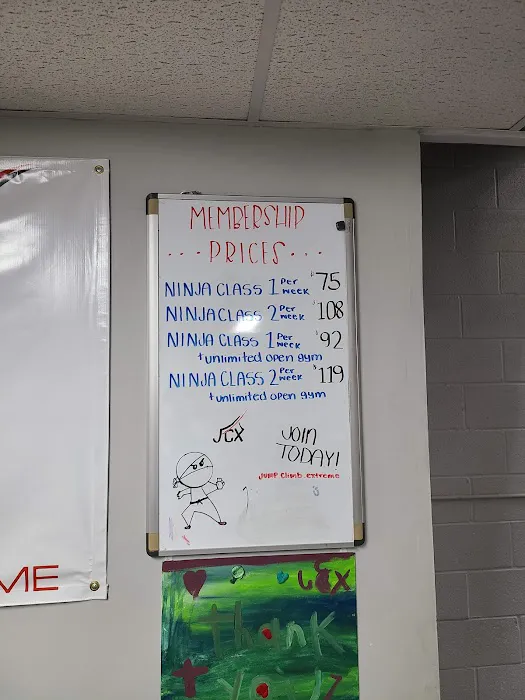 MEMBERSHIP
...PRICES...
NINJA CLASS 1 Per week $75
NINJA CLASS 2 Per week $108
NINJA CLASS 1 Per week $92
+unlimited open gym
NINJA CLASS 2 Per week $119
+unlimited open gym
JCX
JOIN
TODAY!
Jump.Climb.extreme
ME
JCX
Thank
You